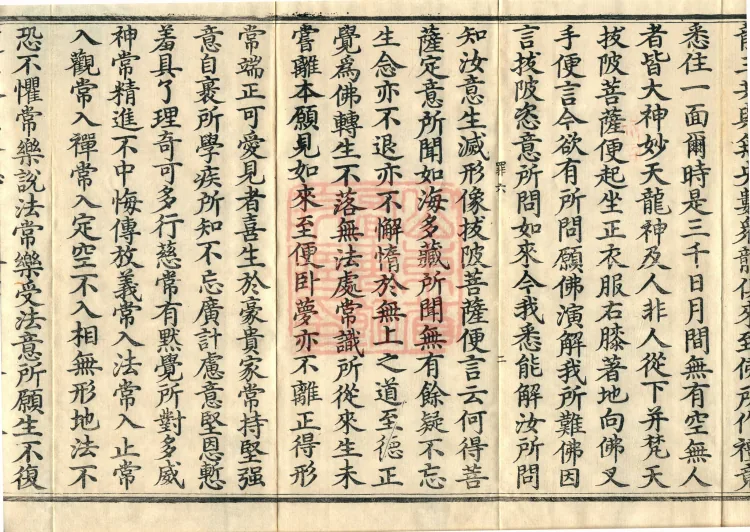 悉住一面爾時是三千日月間無有空無人
者皆大神妙天龍神及人非人從下并梵天
拔陂菩薩便起坐正衣服右膝著地向佛叉
手便言今欲有所問願佛演解我所難佛因
言拔陂恣意所問如來令我悉能解汝所問
罪六 二
知汝意生滅形像拔陂菩薩便言云何得菩
薩定意所聞如海多藏所聞無有餘疑不忘
生念亦不退亦不懈惰於無上之道至德正
覺爲佛轉生不落無法處常識所從來生未
嘗離本願見如來至便卧夢亦不離正得形
常端正可愛見者喜生於豪貴家常持堅强
意自裹所學疾所知不忘廣計慮意堅恩慙
羞具了理奇可多行慈常有黙覺所對多威
神常精進不中悔傳放義常入法常入止常
入觀常入禪常入定空不入相無形地法不
恐不懼常樂說法常樂受法意所願生不復